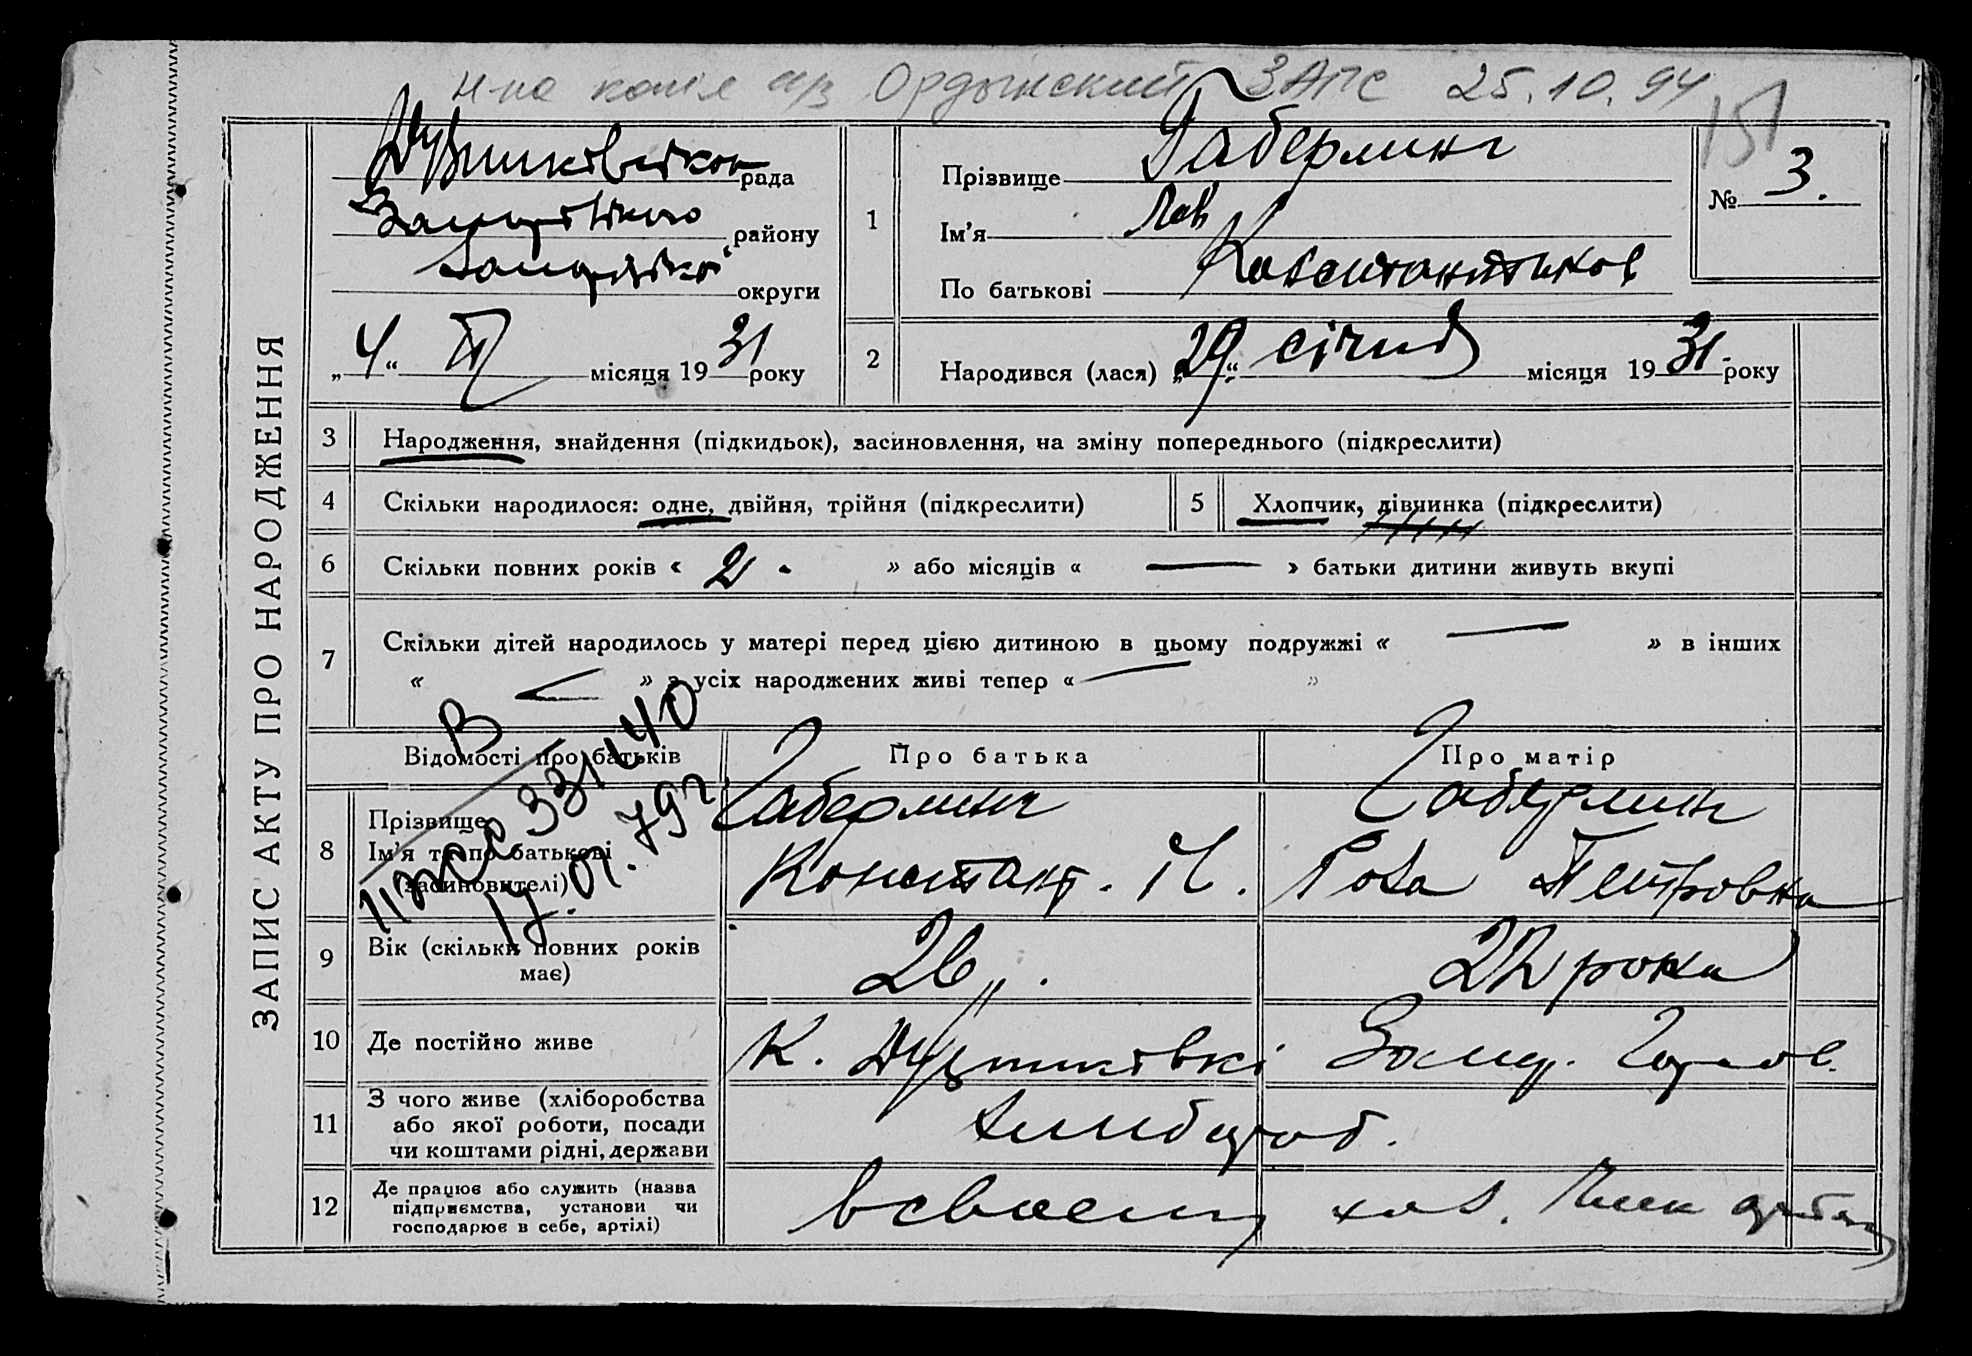 25.10.94
151
ЗАПИС АКТУ ПРО НАРОДЖЕННЯ
рада
району
округи
„4“ II місяця 1931 року
1
Прізвище Габерлинг
Ім'я Лев
По батькові
№ 3.
2
Народився (лася) „29“ січня місяця 1931 року
3
Народження, знайдення (підкидьок), засиновлення, на зміну попереднього (підкреслити)
4
Скільки народилося: одне, двійня, трійня (підкреслити)
5
Хлопчик, дівчинка (підкреслити)
6
Скільки повних років « 2 » або місяців « — » батьки дитини живуть вкупі
7
Скільки дітей народилось у матері перед цією дитиною в цьому подружжі « — » в інших
« — » з усіх народжених живі тепер « — »
Відомості про батьків
Про батька
Про матір
331440
17.01.79г
8
Прізвище
Ім'я та по батькові
(засиновителі)
Габерлинг
Констант. И.
Габерлинг
Роза Петровна
9
Вік (скільки повних років
має)
26
22 рока
10
Де постійно живе
К.
11
З чого живе (хліборобства
або якої роботи, посади
чи коштами рідні, держави
хлибороб.
12
Де працює або служить (назва
підприємства, установи чи
господарює в себе, артілі)
в своем хоз.